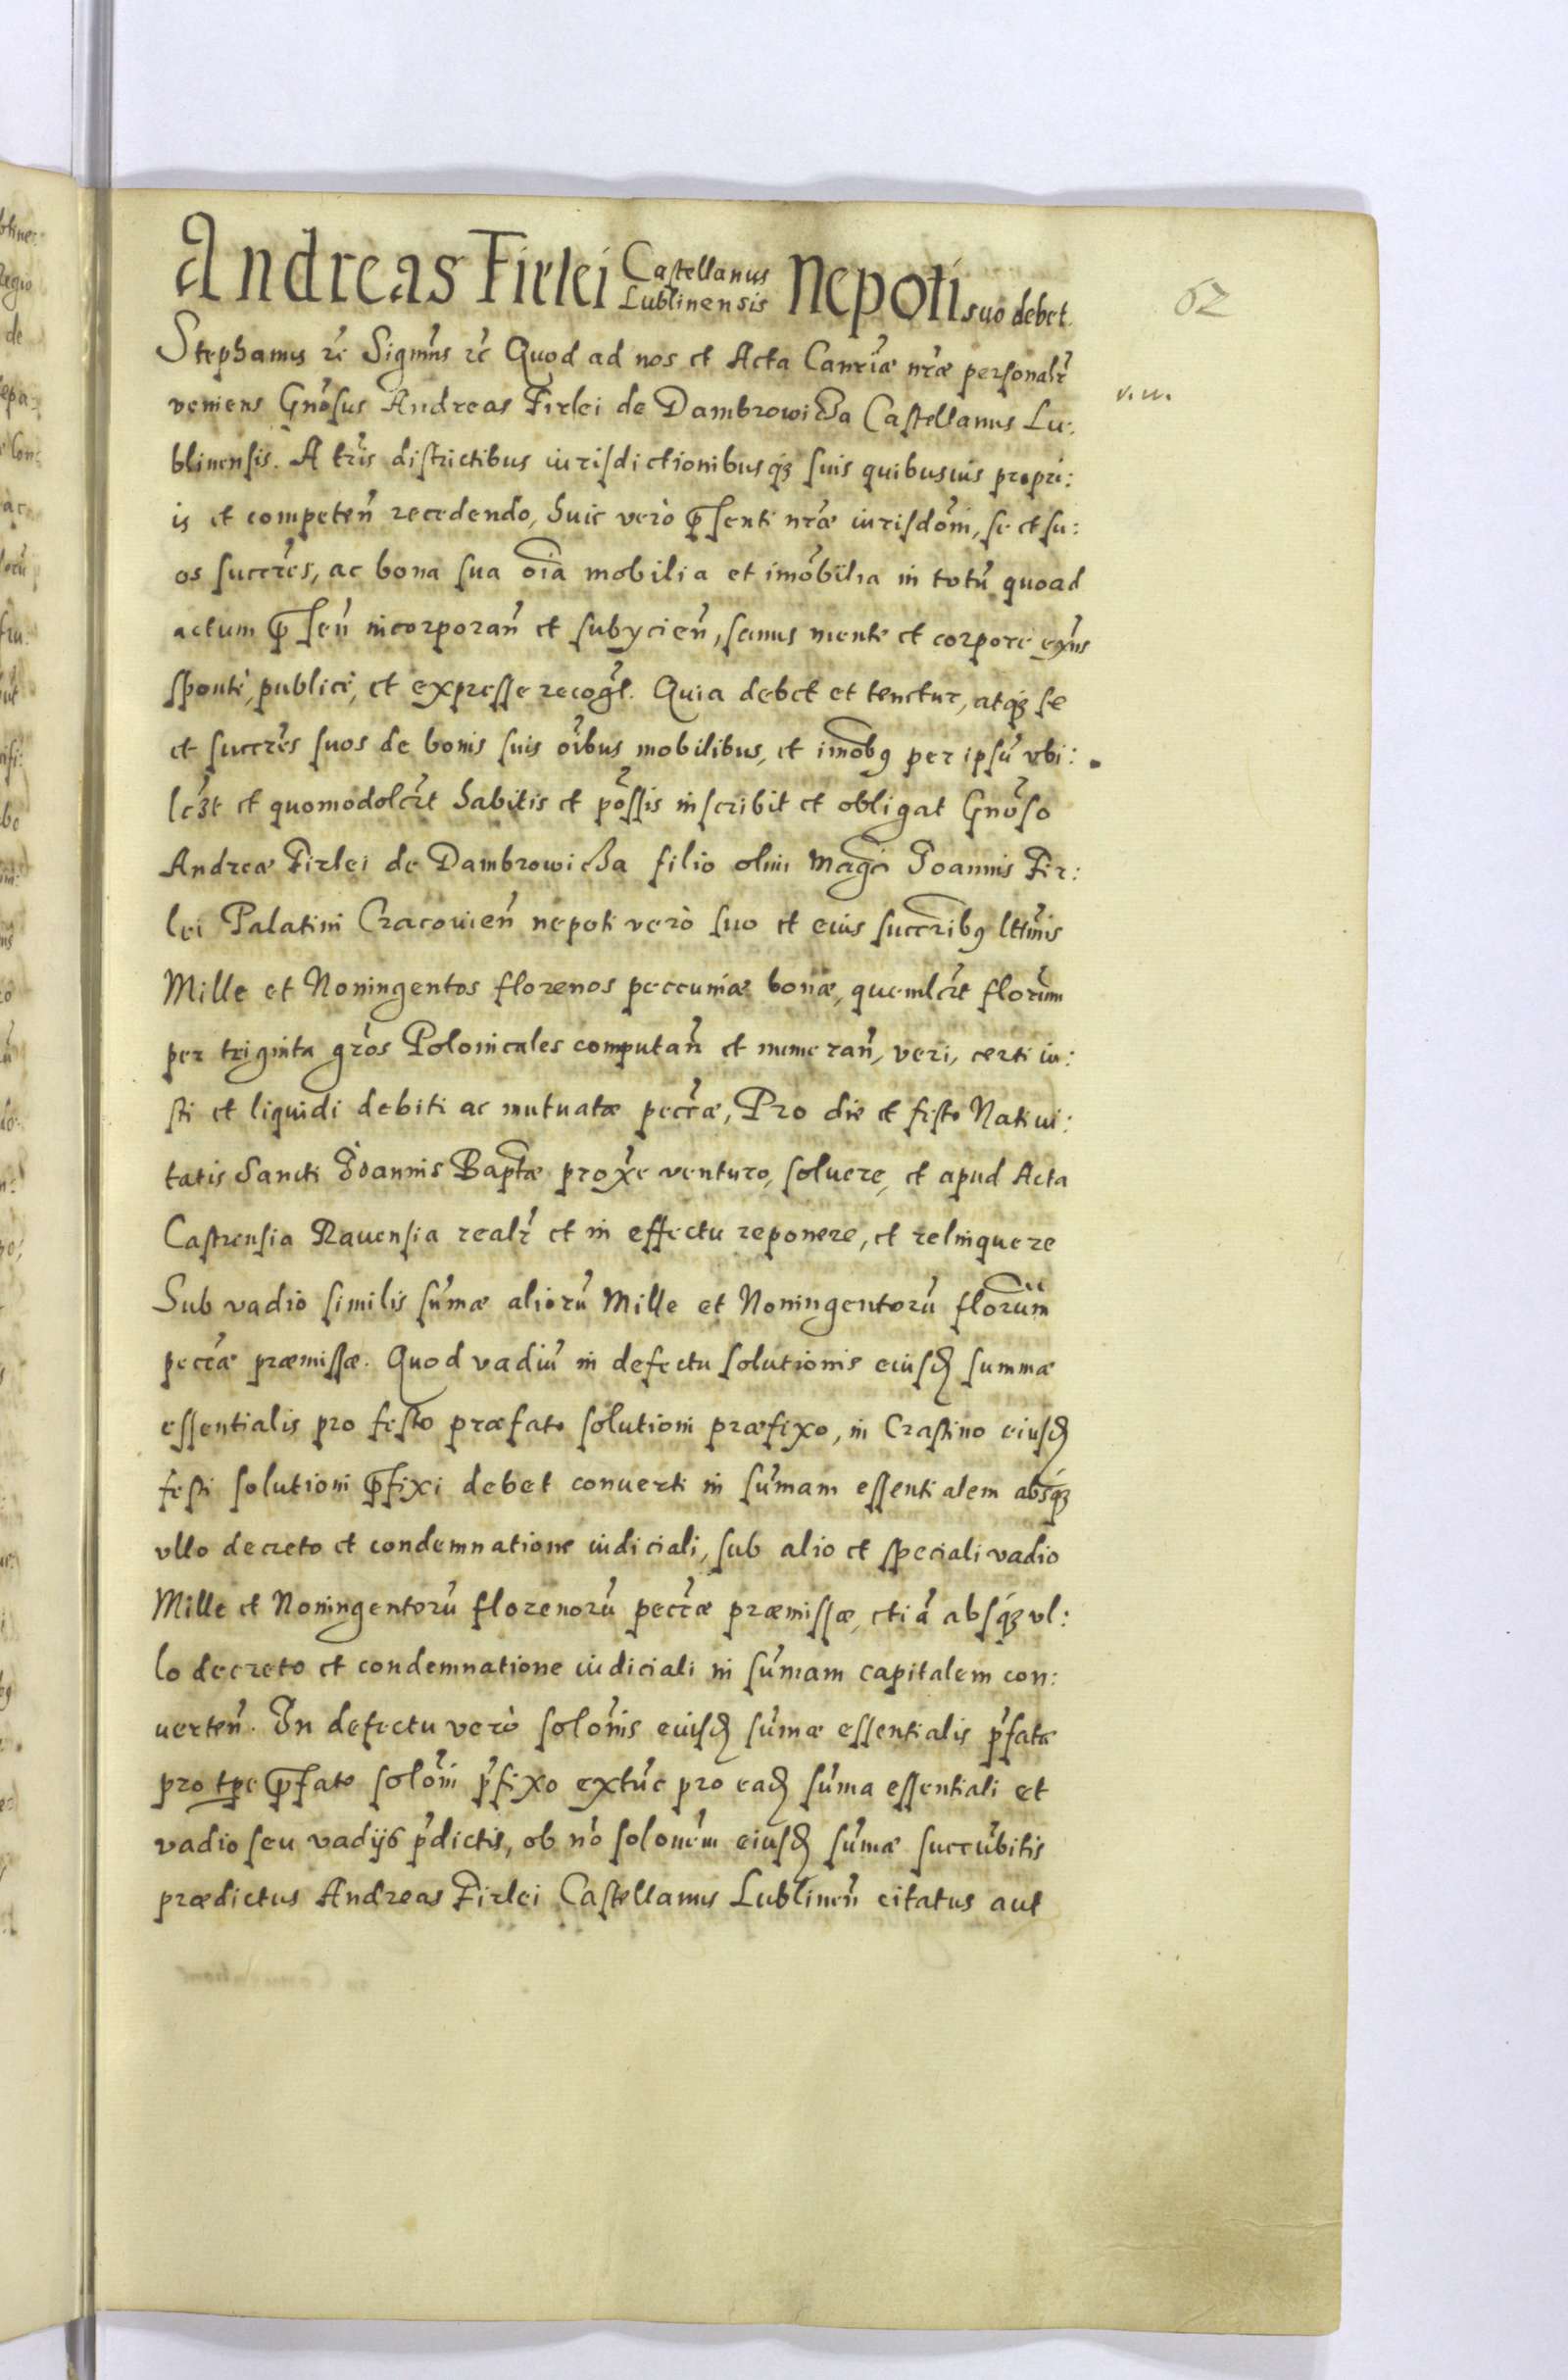 Andreas Firlei Castellanus Lublinensis Nepoti suo debet.
62
Stephanus rc̃ Signm̃s rc̃ Quod ad nos et Acta Canriæ nr̃æ personalr̃
v. w.
veniens Gnõsus Andreas Firlei de Dambrowicza Castellanus Lu:
blinensis. A tr̃is districtibus iurisdictionibusq́ꝫ suis quibusuis propri:
is et competeñ recedendo, huic verò p̃senti nr̃æ iurisdõni, se et su:
os succr̃es, ac bona sua oĩa mobilia et imõbilia in totũ quoad
actum p̃señ incorporañ et subycieñ, sanus mente et corpore exñs
spontè, publicè, et expresse recogl̃. Quia debet et tenetur, atq́ꝫ se
et succr̃es suos de bonis suis oĩbus mobilibus, et imõbꝰ per ipsũ vbi:
lcȝt et quomodolcȝt habitis et põssis inscribit et obligat Gnõso
Andreæ Firlei de Dambrowicza filio olim Magci Joannis Fir:
lei Palatini Cracouieñ nepoti verò suo et eius succr̃ibꝰ lttm̃is
Mille et Noningentos florenos peccuniæ bonæ, quemlcȝt flor̃um
per triginta grõs Polonicales computañ et numerañ, veri, certi iu:
sti et liquidi debiti ac mutuatæ peccr̃æ, Pro die et festo Natiui:
tatis Sancti Joannis Baptæ prox̃e venturo, soluere, et apud Acta
Castrensia Rauensia realr̃ et in effectu reponere, et relinquere
Sub vadio similis sum̃æ aliorũ Mille et Noningentorũ flor̃um
peccr̃æ præmissæ. Quod vadiũ in defectu solutionis eiusđ summæ
essentialis pro festo præfato solutioni præfixo, in Crastino eiusđ
festi solutioni p̃fixi debet conuerti in sum̃am essentialem absq́ꝫ
vllo decreto et condemnatione iudiciali, sub alio et speciali vadio
Mille et Noningentorũ florenorũ peccr̃æ præmissæ, etiã absq́ꝫ vl:
lo decreto et condemnatione iudiciali in sum̃am capitalem con:
uerteñ. In defectu verò solõnis eiusđ sum̃æ essentialis p̃fatæ
pro tp̃e p̃fato solõni p̃fixo extũc pro eađ sum̃a essentiali et
vadio seu vadijs p̃dictis, ob nõ solonẽm eiusđ sum̃æ succũbitis
prædictus Andreas Firlei Castellanus Lublineñ citatus aut